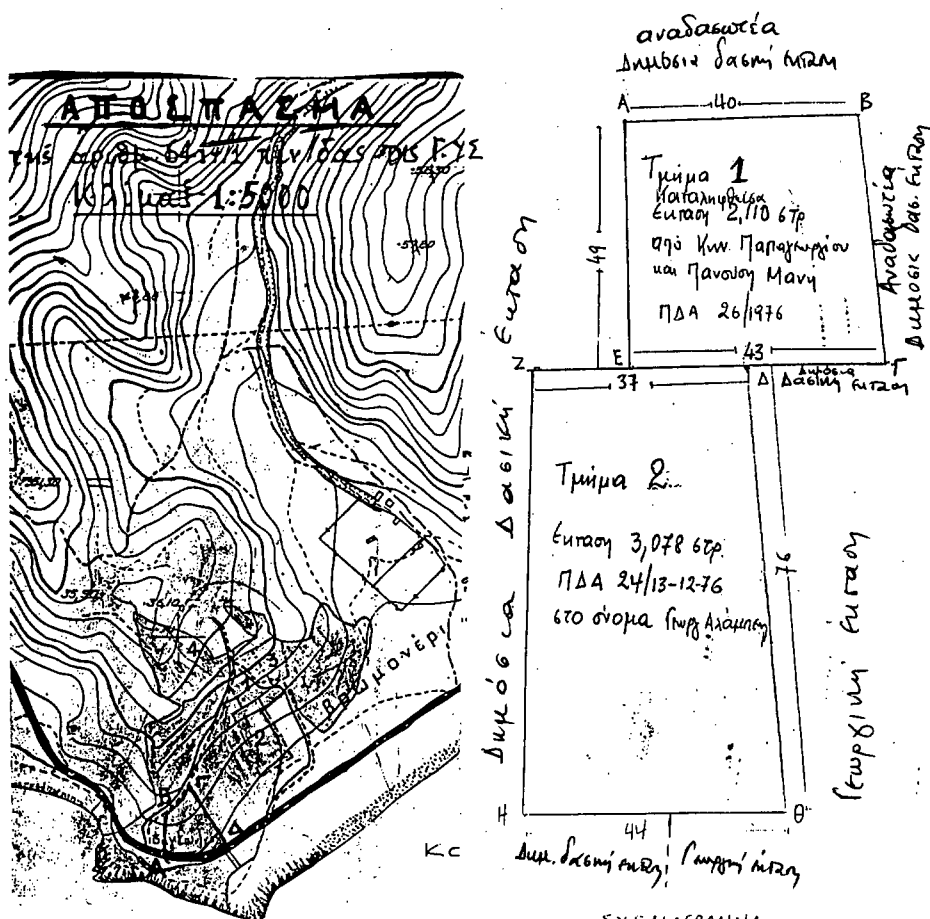 ΑΠΟΣΠΑΣΜΑ
της αριθ. 6414/1 πιν/δας της Γ.Υ.Σ
Κλίμακα 1:5000
Βρωμονέρι
Κc
αναδασωτέα
Δημόσια δασική έκταση
Α 40 Β
49
Τμήμα 1
Καταληφθείσα
Έκταση 2,110 στρ
από Κων. Παπαγεωργίου
και Πανούση Μανή
ΠΔΑ 26/1976
Αναδασωτέα
Δημόσια δασ. έκταση
Ζ Ε 43 Γ
37 Δ Δημόσια
Δασική έκταση
Δημόσια Δασική έκταση
Τμήμα 2
Έκταση 3,078 στρ.
ΠΔΑ 24/13-12-76
στο όνομα Γεωργ
76
Γεωργική έκταση
Η 44 Θ
Δημ. δασική έκταση Γεωργική έκταση